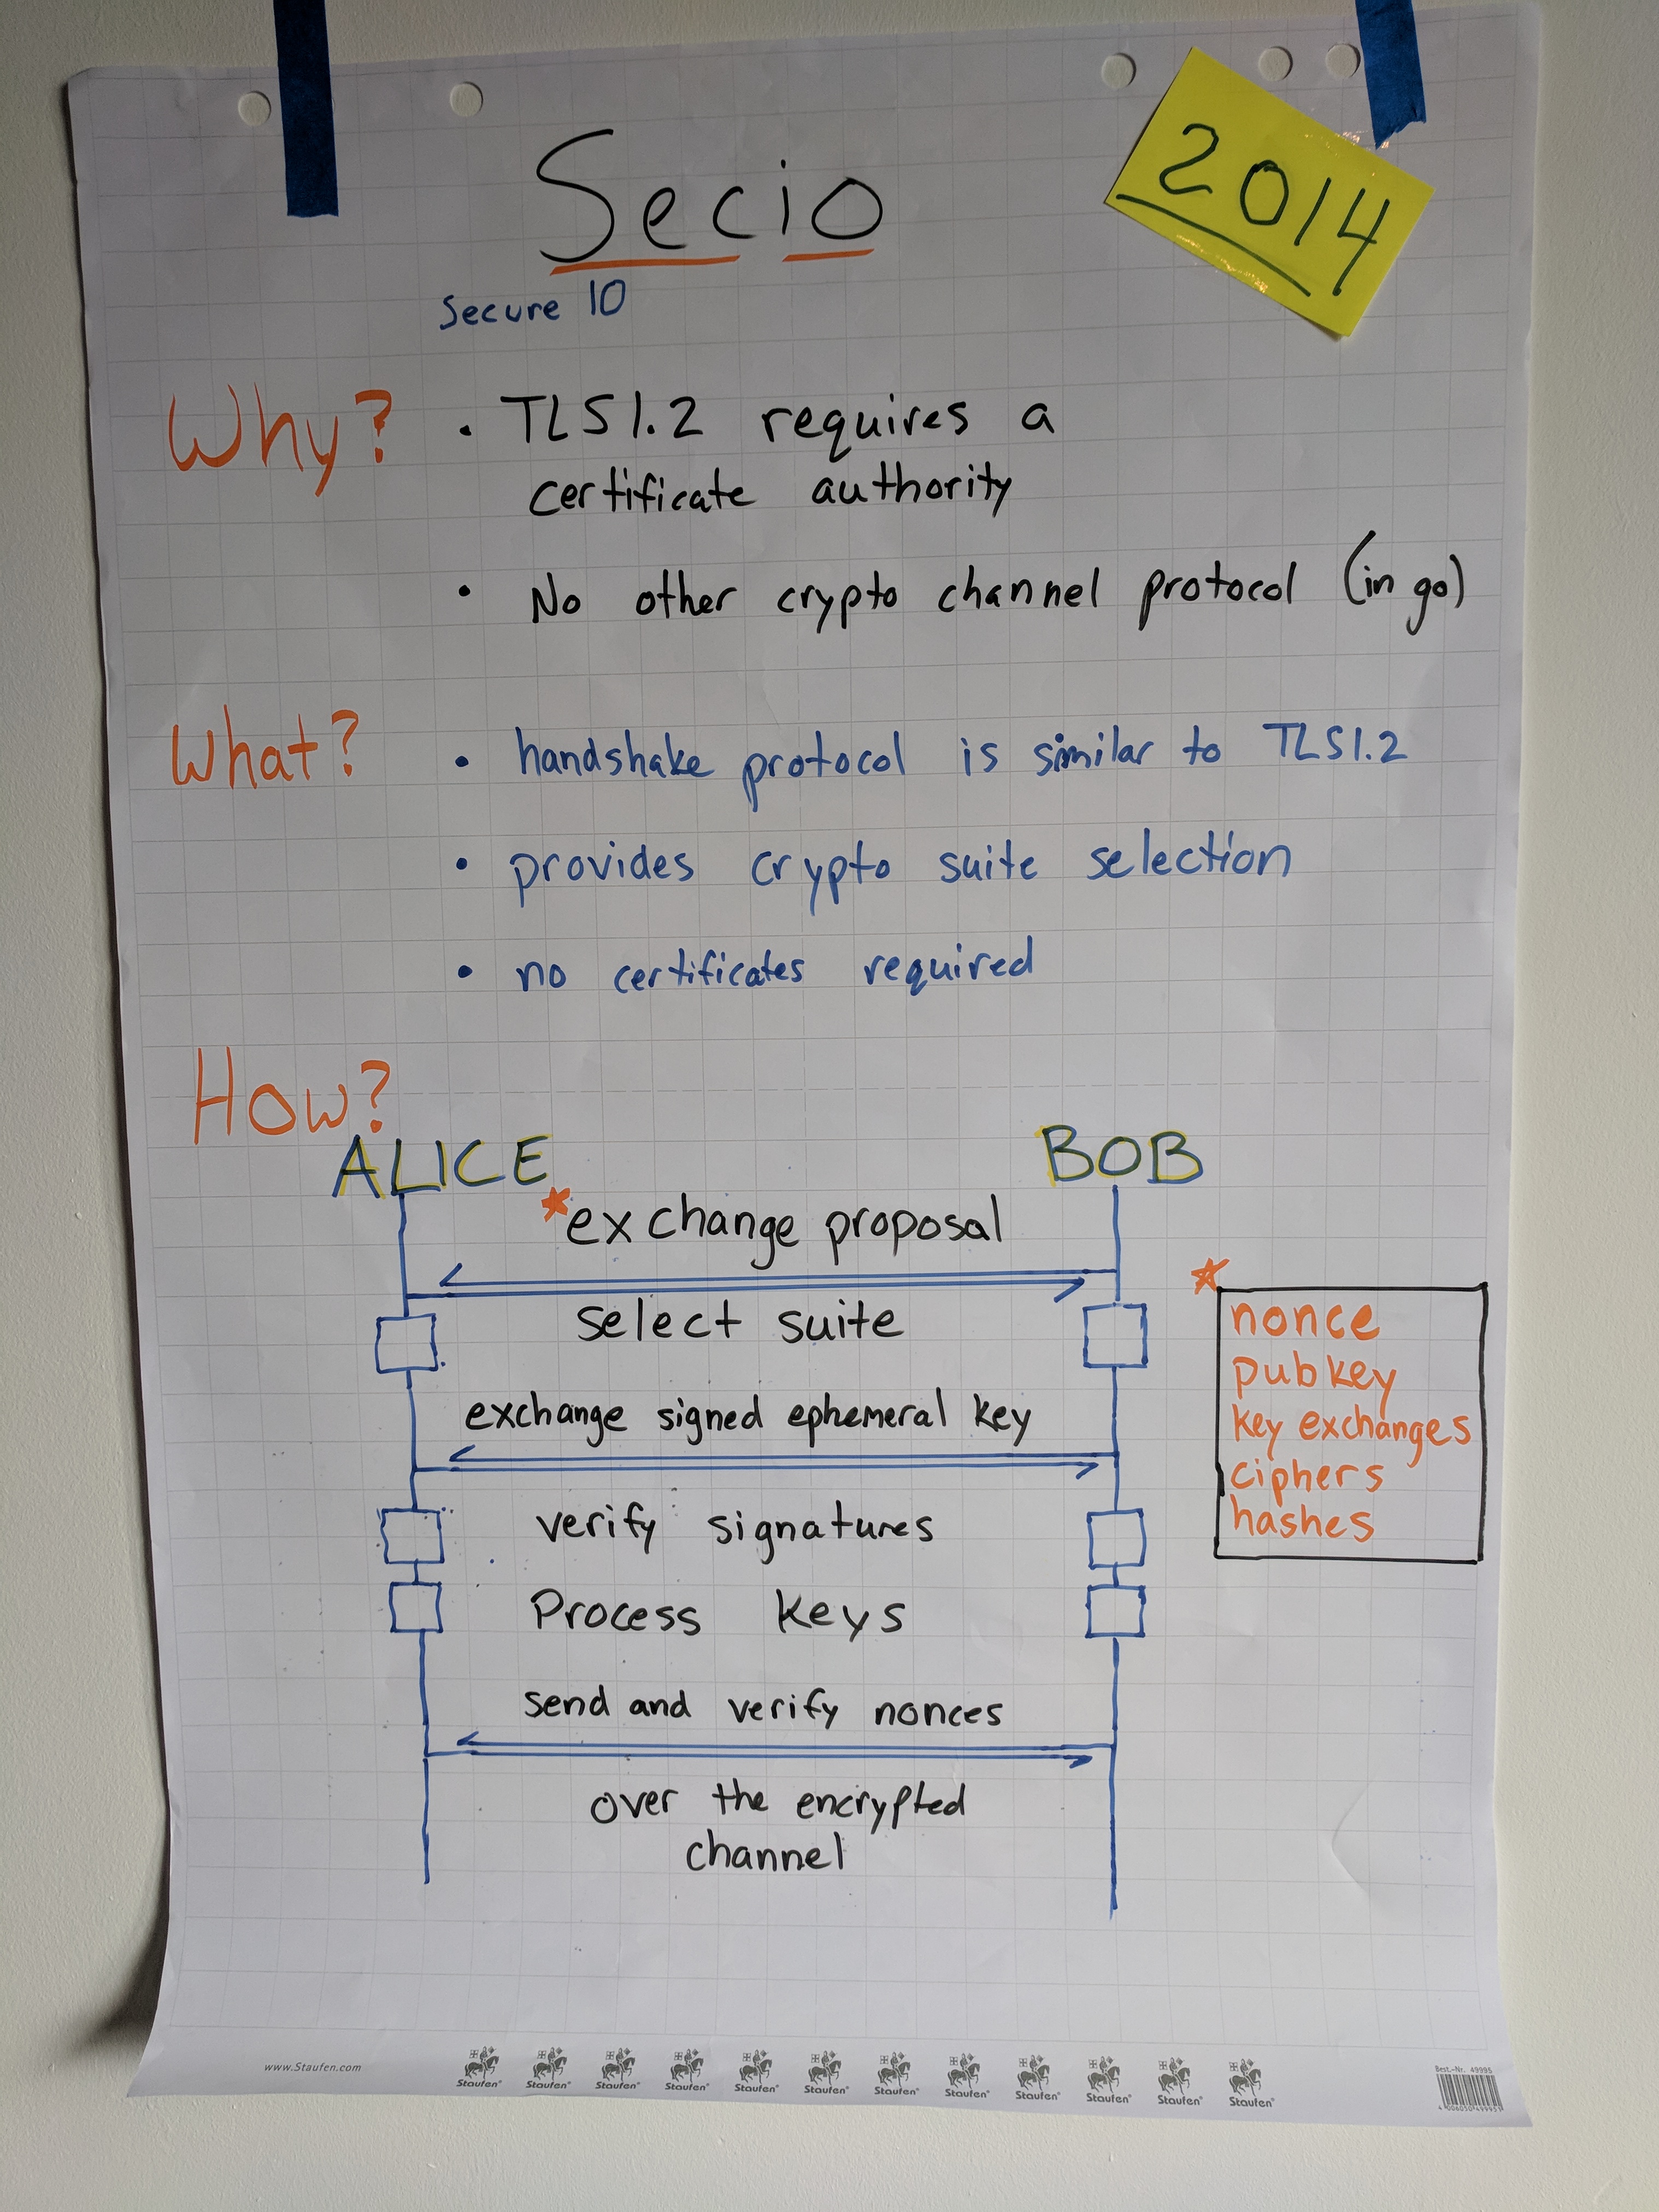 2014
Secio
Secure IO
Why?
• TLS1.2 requires a
certificate authority
• No other crypto channel protocol (in go)
What?
• handshake protocol is similar to TLS1.2
• provides crypto suite selection
• no certificates required
How?
ALICE BOB
*exchange proposal
select suite
*
nonce
pubkey
key exchanges
ciphers
hashes
exchange signed ephemeral key
verify signatures
Process keys
send and verify nonces
over the encrypted
channel
www.Staufen.com
Staufen® Staufen® Staufen® Staufen® Staufen® Staufen® Staufen® Staufen® Staufen® Staufen® Staufen® Staufen®
Best.-Nr. 49995
4 006050 499951